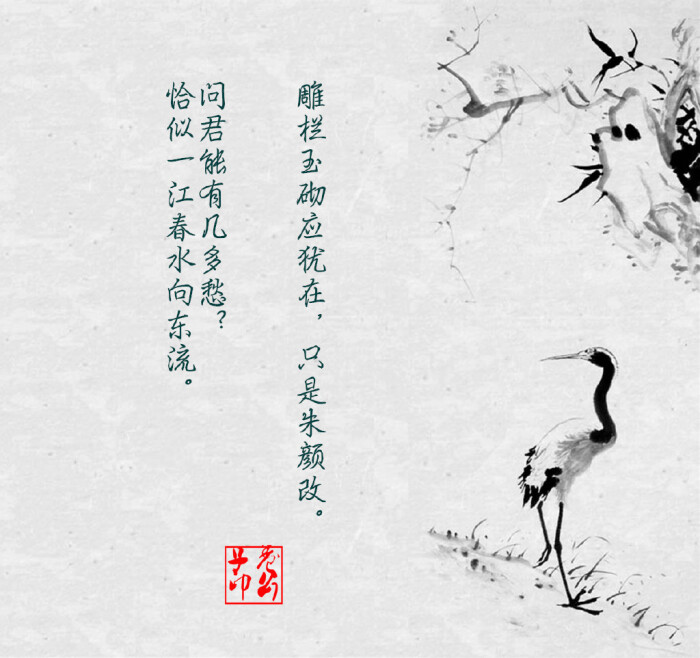 雕栏玉砌应犹在，只是朱颜改。
问君能有几多愁？
恰似一江春水向东流。